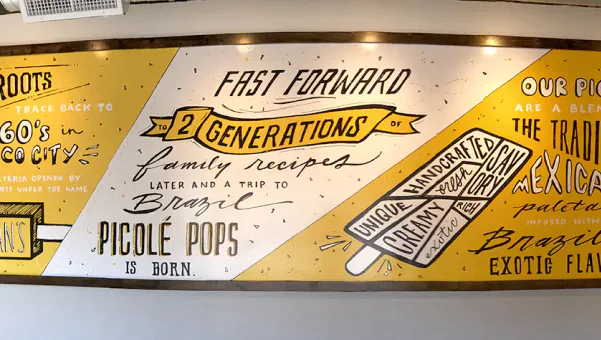 ROOTS
TRACE BACK TO
60's in
CO CITY
ETERIA OPENED BY
NTS UNDER THE NAME
AN'S
FAST FORWARD
TO 2 GENERATIONS OF
family recipes
LATER AND A TRIP TO
Brazil
PICOLÉ POPS
IS BORN.
UNIQUE HANDCRAFTED SAVORY
fresh
CREAMY RICH
exotic
OUR PIC
ARE A BLEN
THE TRADI
MEXICA
paleta
INFUSED WITH
Brazil
EXOTIC FLAV